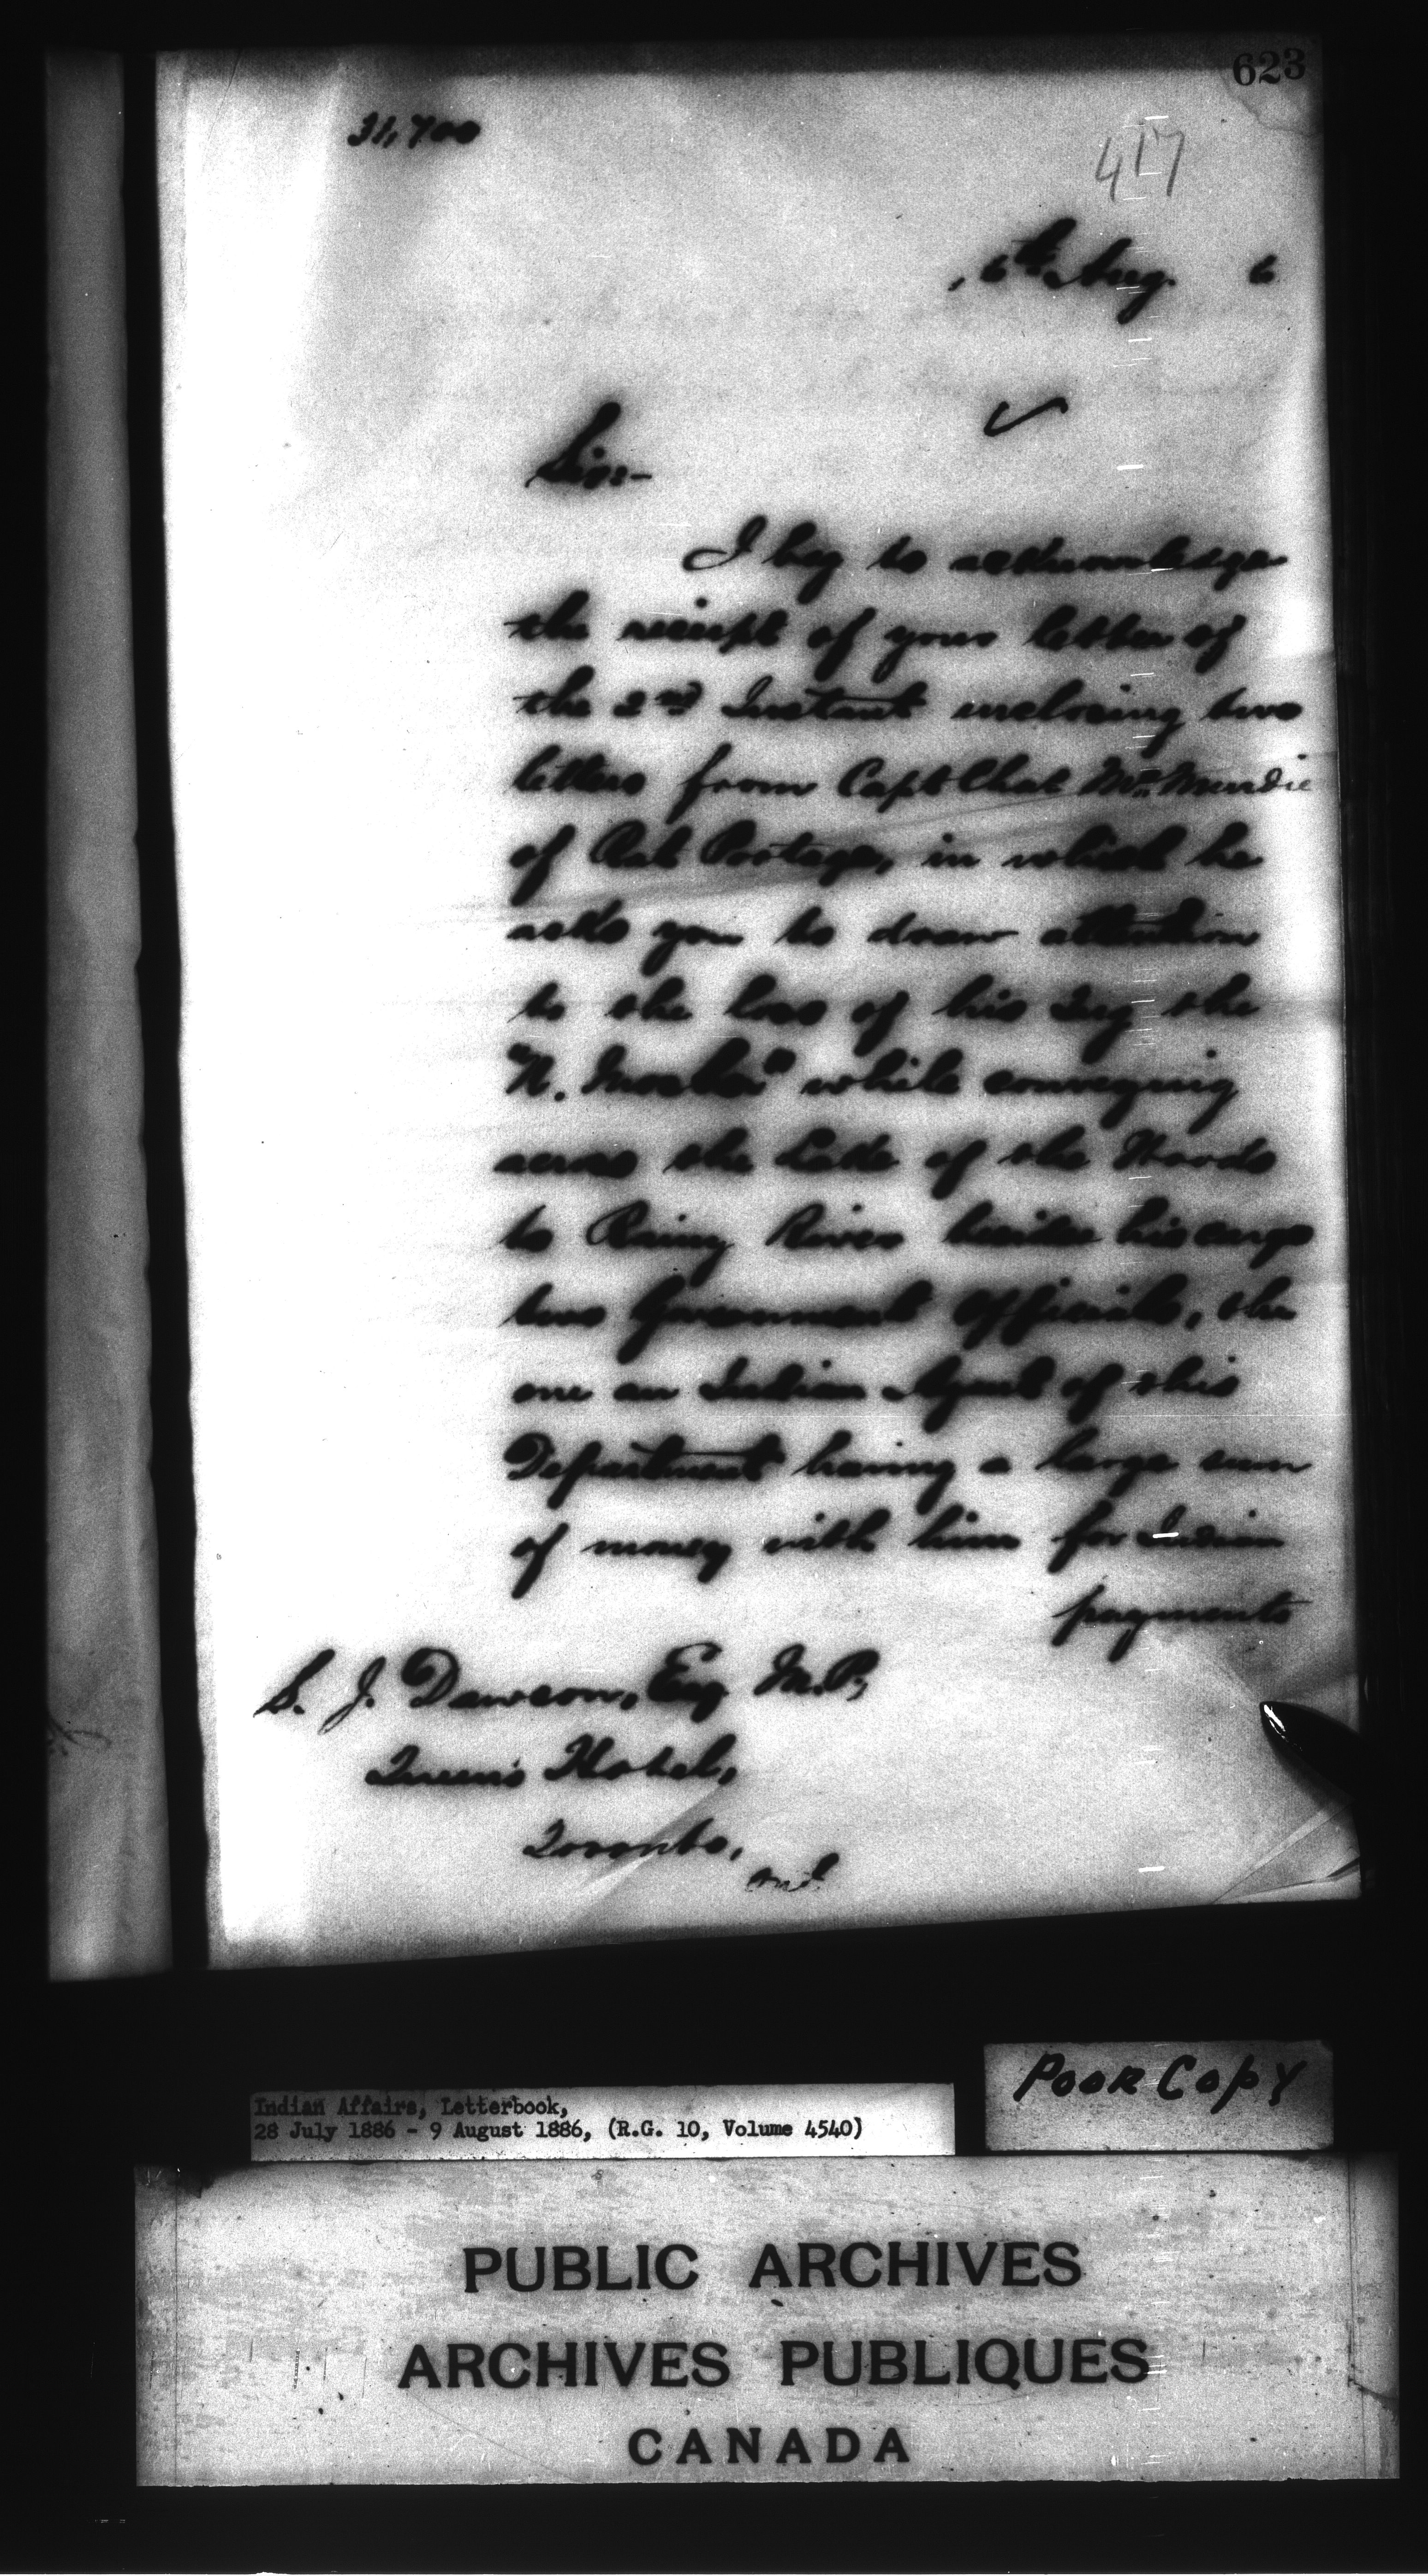 623
31,700
417
6th Aug. 6
Sir:-
I beg to acknowledge
the receipt of your letter of
the 2nd Instant inclosing two
letters from Capt Chas
of Rat Portage, in which he
asks you to draw attention
to the loss of his Tug the
"N. Mosher" while conveying
across the Lake of the Woods
to Rainy River besides his cargo
two Government Officials, the
one an Indian Agent of this
Department having a large sum
of money with him for Indian
payments
S. J. Dawson, Esq. M.P,
Queen's Hotel,
Toronto,
Ont.
Poor Copy
Indian Affairs, Letterbook,
28 July 1886 - 9 August 1886, (R.G. 10, Volume 4540)
PUBLIC ARCHIVES
ARCHIVES PUBLIQUES
CANADA